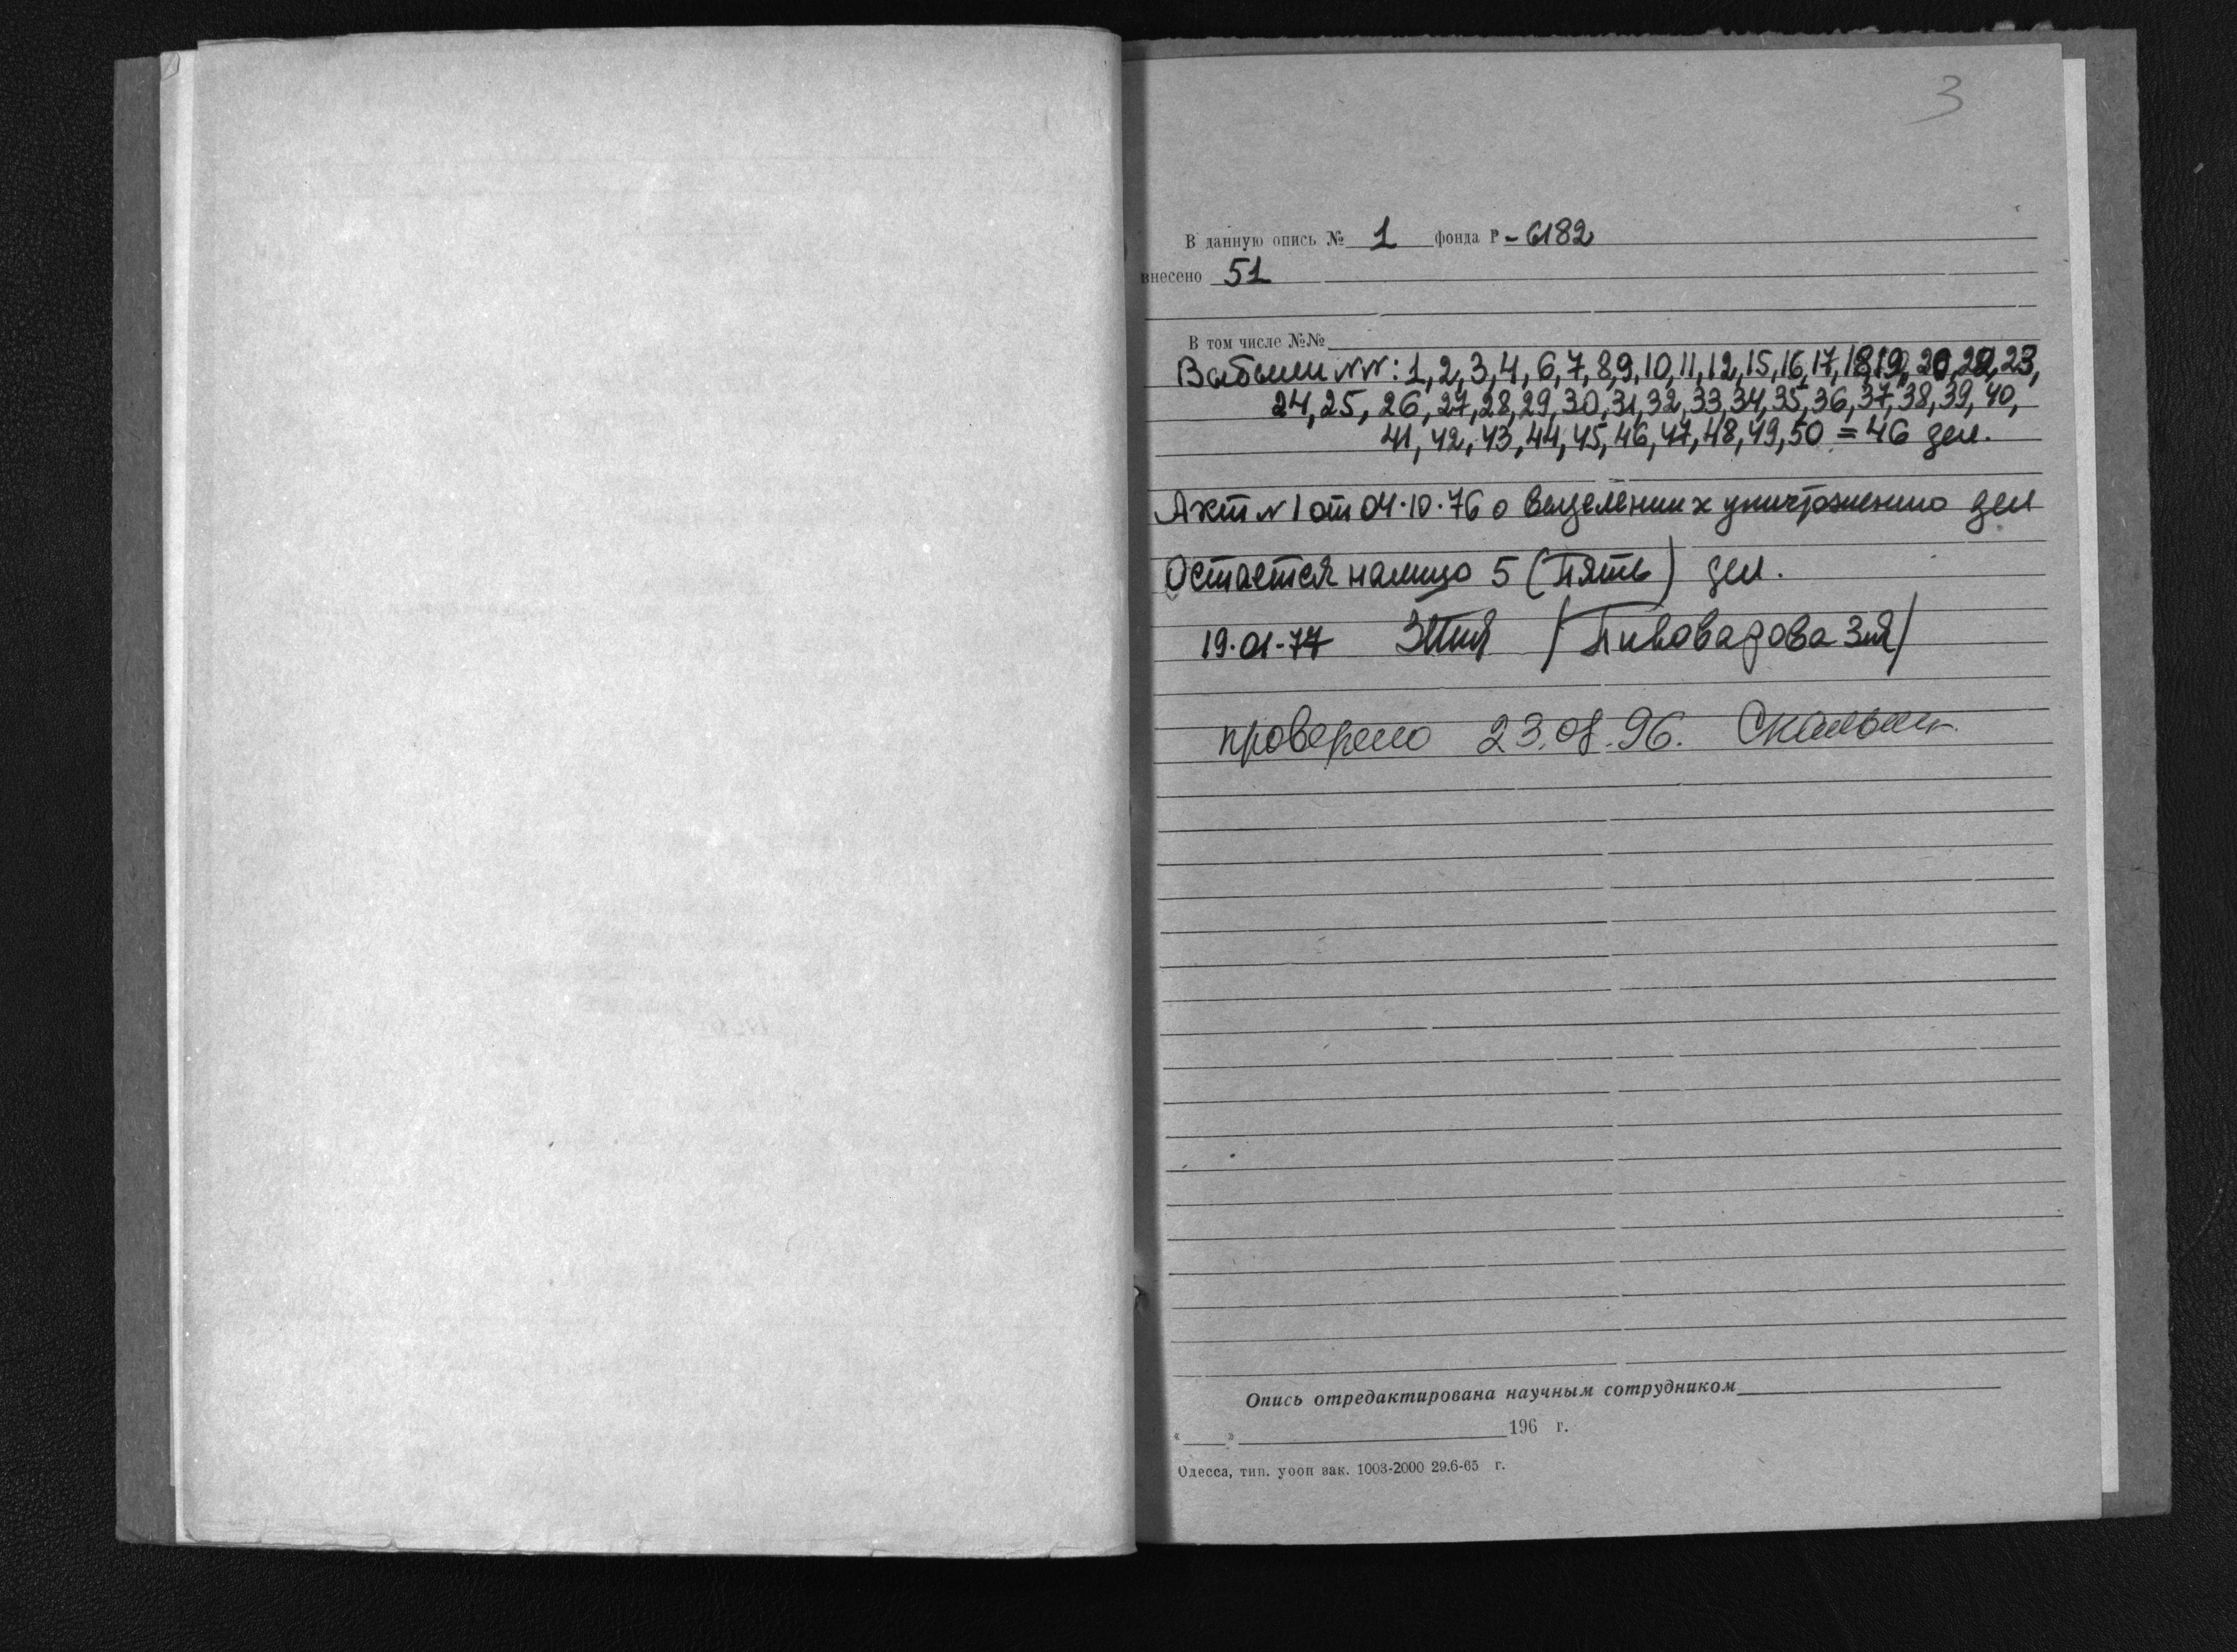 3
В данную опись № 1 фонда Р-6182
внесено 51
В том числе №№
Выбыли NN: 1,2,3,4,6,7,8,9,10,11,12,15,16,17,18,19,20,22,23,
24,25,26,27,28,29,30,31,32,33,34,35,36,37,38,39,40,
41,42,43,44,45,46,47,48,49,50 = 46 дел.
Акт N 1 от 04.10.76 о выделении к уничтожению дел
Остается налицо 5 (пять) дел.
19.01-77 (Пивоварова
проверено 23.08.96.
Опись отредактирована научным сотрудником
« » 196 г.
Одесса, тип. уооп зак. 1003-2000 29.6-65 г.